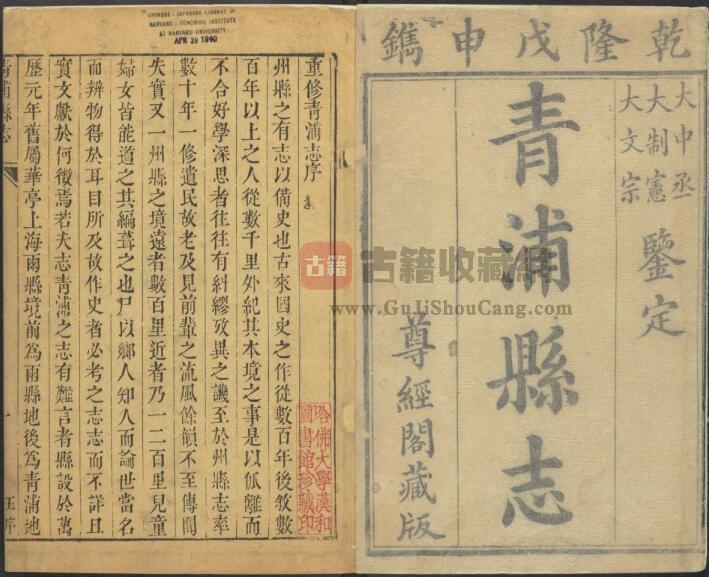 乾隆戊申鐫
大中丞
大制憲
大文宗
鑒定
青浦縣志
尊經閣藏版
CHINESE - JAPANESE LIBRARY OF
HARVARD - YENCHING INSTITUTE
AT HARVARD UNIVERSITY
APR 29 1940
重修青浦志序
州縣之有志以備史也古來國史之作從數百年後敘數
百年以上之人從數千里外紀其本境之事是以伥離而
不合好學深思者往往有糾繆攷異之譏至於州縣志率
數十年一修遺民故老及見前輩之流風餘韻不至傳聞
失實又一州縣之境遠者數百里近者乃一二百里兒童
婦女皆能道之其編葺之也尸以鄉人知人而論世當名
而辨物得於耳目所及故作史者必考之志志而不詳且
實文獻於何徵焉若夫志青浦之志有難言者縣設於萬
歷元年舊屬華亭上海兩縣境前為兩縣地後為青浦地
青浦縣志
一
王序
哈佛大學漢和
圖書館珍藏印
古籍
古籍收藏
www.GuLiShouCang.com